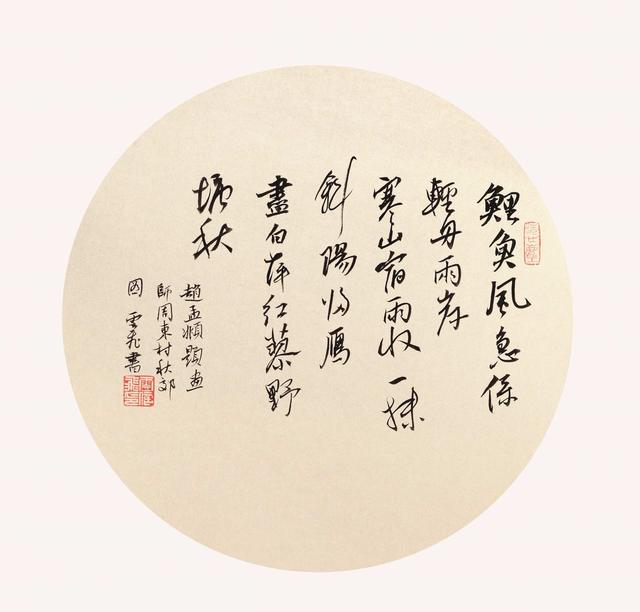 鯉魚風急係
輕舟兩岸
寒山宿雨收一抹
斜陽歸鴈
盡白萍紅蓼野
塘秋
趙孟頫題畫
師周東村秋郊
図 雲飛書